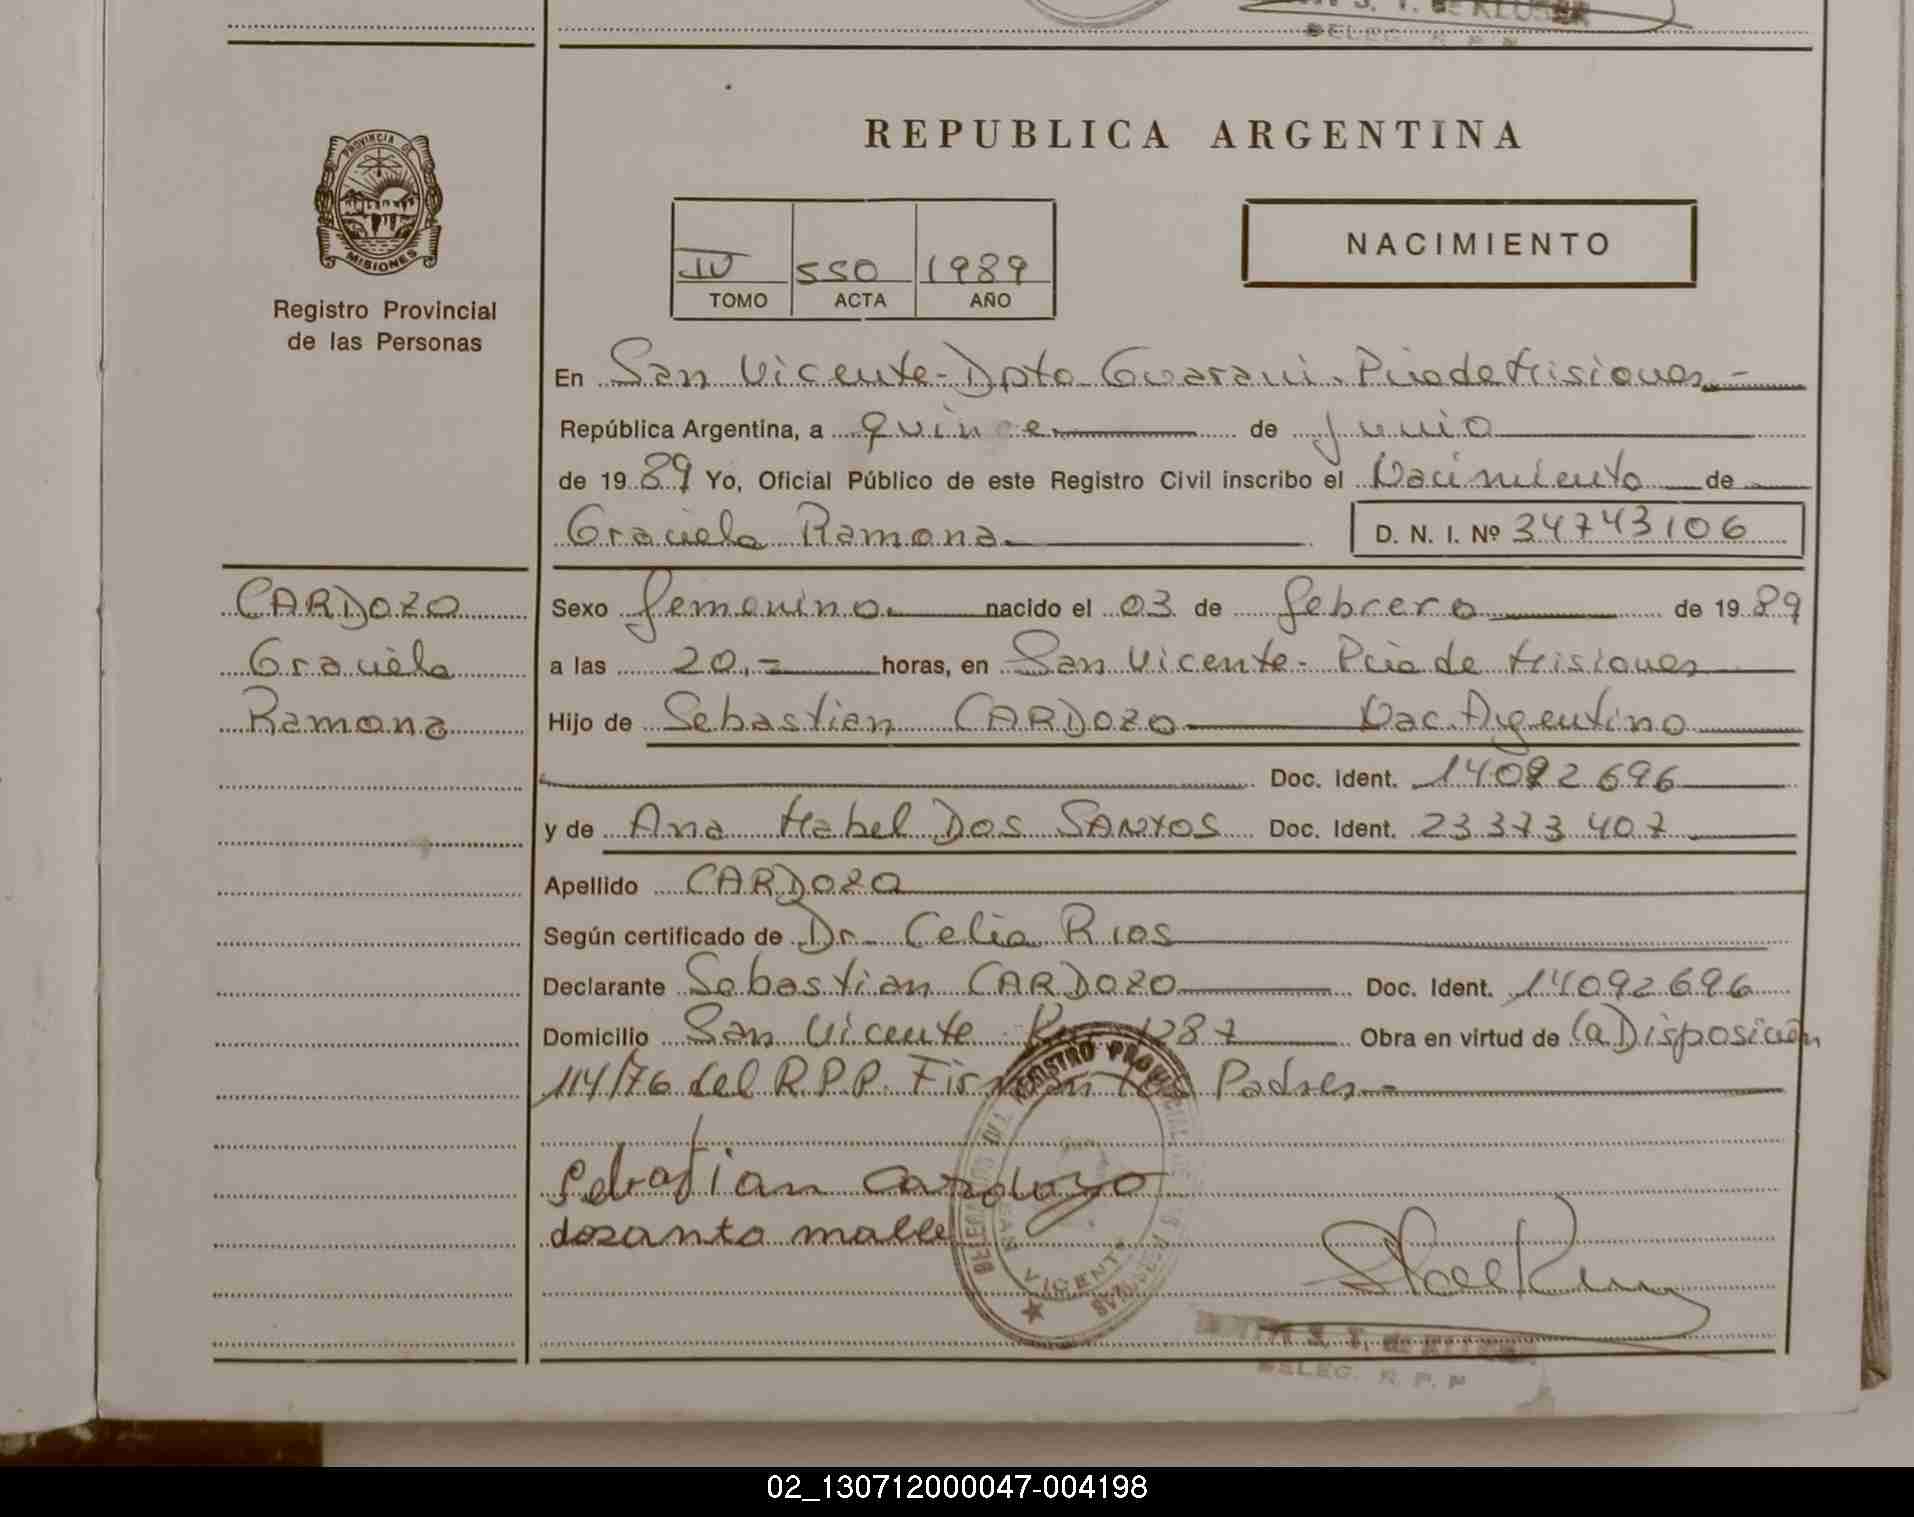 DELEG. R. P. P.
PROVINCIA DE
MISIONES
Registro Provincial
de las Personas
REPUBLICA ARGENTINA
IV 550 1989
TOMO ACTA AÑO
NACIMIENTO
En San Vicente - Dpto Guarani. Pcia de Misiones.-
República Argentina, a quince de junio
de 1989 Yo, Oficial Público de este Registro Civil inscribo el Nacimiento de
Graciela Ramona. D. N. I. Nº 34743106
CARDOZO
Graciela
Ramona
Sexo femenino. nacido el 03 de febrero de 1989
a las 20.= horas, en San Vicente - Pcia de Misiones
Hijo de Sebastian CARDOZO Nac. Argentino
Doc. Ident. 14092696
y de Ana Mabel DOS SANTOS Doc. Ident. 23373407
Apellido CARDOZO
Según certificado de Dr. Celia Rios
Declarante Sebastian CARDOZO Doc. Ident. 14092696
Domicilio San Vicente 1287 Obra en virtud de (a) Disposición
114/76 del R.P.P. Firman los Padres.-
Sebastian Cardozo
dosanto mabel
REGISTRO PROVINCIAL
SAN VICENTE
S. T. de KLUSER
DELEG. R. P. P
02_130712000047-004198